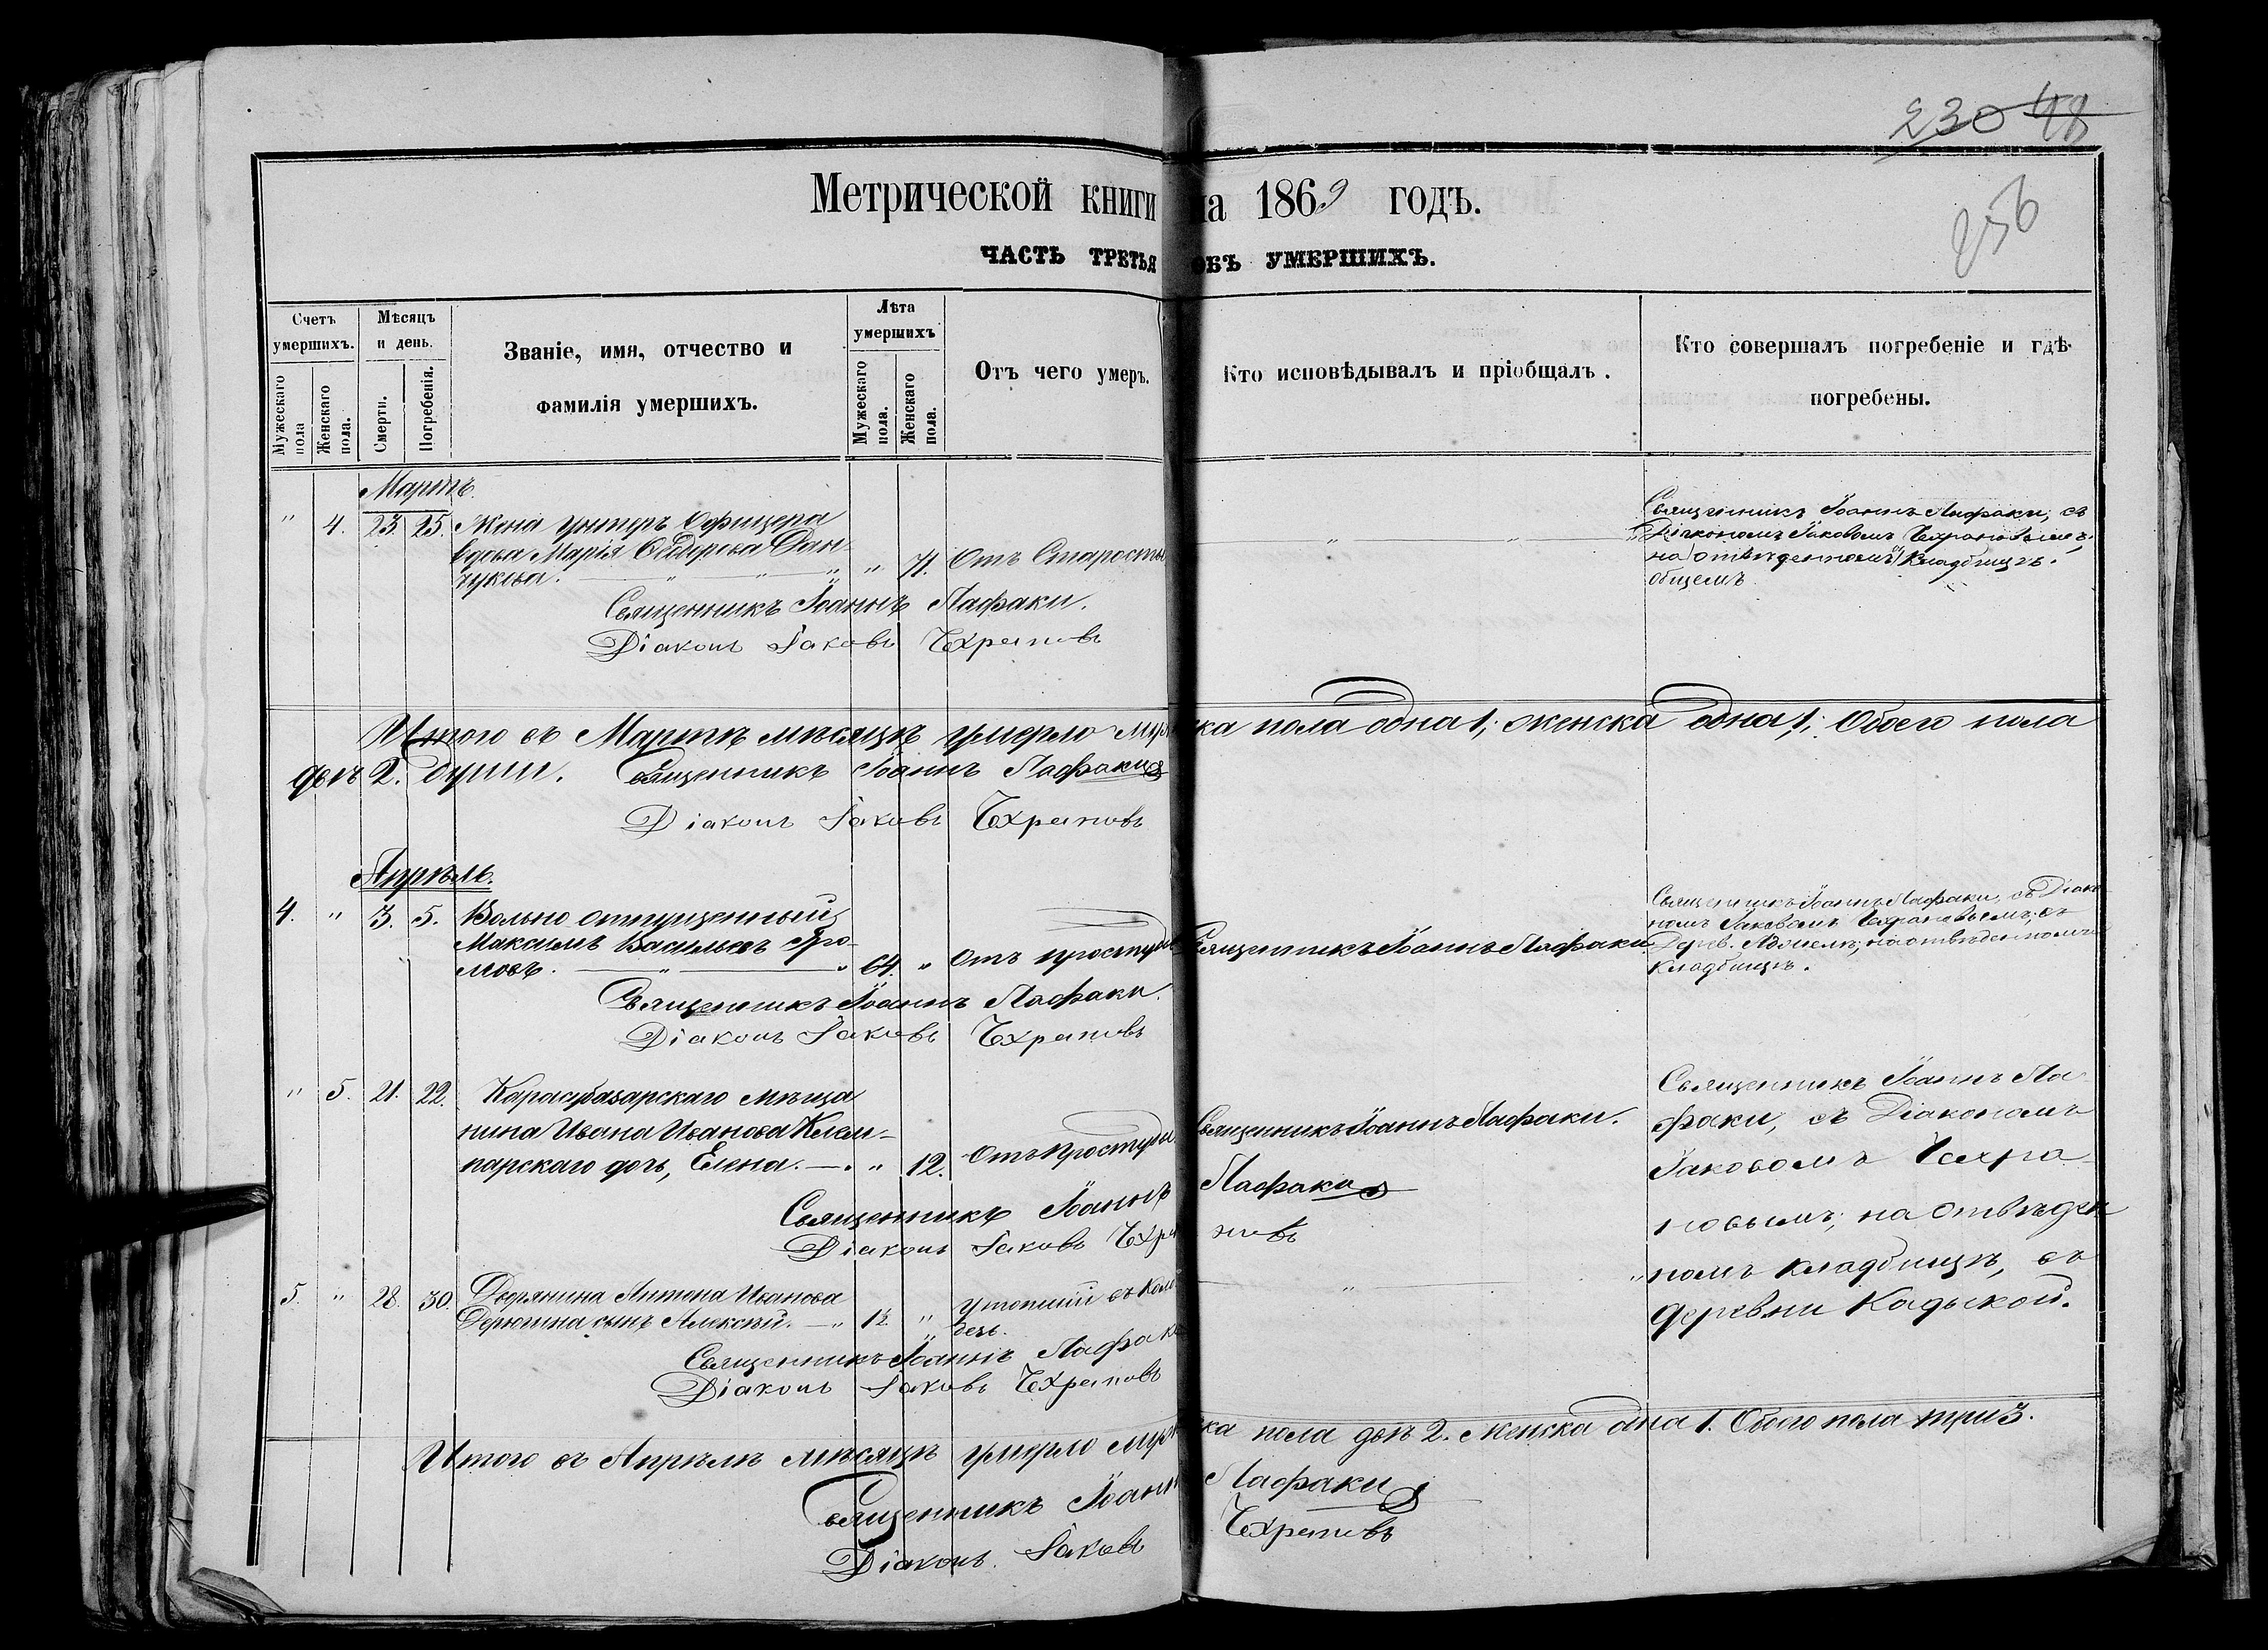 230 48
256
Метрической книги на 1869 годъ.
ЧАСТЬ ТРЕТЬЯ ОБЪ УМЕРШИХЪ.
Счетъ умершихъ.
Мужескаго пола
Женскаго пола.
Мѣсяцъ и день.
Смерти.
Погребенія.
Званіе, имя, отчество и
фамилія умершихъ.
Лѣта умершихъ
Мужескаго пола.
Женскаго пола.
Отъ чего умеръ.
Кто исповѣдывалъ и пріобщалъ.
Кто совершалъ погребеніе и гдѣ
погребены.
Мартъ.
" 4. 23. 25. Жена Унтеръ Офицера
вдова Марія Ѳедорова Дан-
чукова. " 71. Отъ Старости
Священникъ Іоаннъ Лафаки, съ
Діакономъ Іаковомъ Чехрановымъ,
на отведенномъ Кладбищѣ.
общемъ
Священникъ Іоаннъ Лафаки.
Діаконъ Іаковъ Чехрановъ
Итого въ Мартѣ мѣсяцѣ умерло мужска пола одна 1; женска одна 1; Обоего пола
двѣ 2. души. Священникъ Іоаннъ Лафаки
Діаконъ Іаковъ Чехрановъ
Апрѣль.
4. " 3. 5. Вольно отпущенный
Максимъ Васильевъ Гро-
мовъ. 64. " Отъ простуды Священникъ Іоаннъ Лафаки
Священникъ Іоаннъ Лафаки, съ Діако
номъ Іаковомъ Чехрановымъ, въ
Дерев. на отвѣденномъ
кладбищѣ.
Священникъ Іоаннъ Лафаки.
Діаконъ Іаковъ Чехрановъ
" 5. 21. 22. Карасубазарскаго мѣща
нина Ивана Иванова
дочь, Елена. " 12. Отъ простуды. Священникъ Іоаннъ Лафаки.
Священникъ Іоаннъ Ла
факи, съ Діакономъ
Іаковомъ Чехра-
новымъ, на отвѣден
номъ кладбищѣ, въ
деревни Кадыкой.
Священникъ Іоаннъ Лафаки
Діаконъ Іаковъ Чехрановъ
5. " 28. 30. Дворянина Антона Иванова
Дерюгина сынъ Алексѣй. " 12 " утопшій въ коло
дезь.
Священникъ Іоаннъ Лафаки
Діаконъ Іаковъ Чехрановъ
Итого въ Апрѣлѣ мѣсяцѣ умерло мужска пола двѣ 2. женска одна 1. Обоего пола три 3.
Священникъ Іоаннъ Лафаки
Діаконъ Іаковъ Чехрановъ